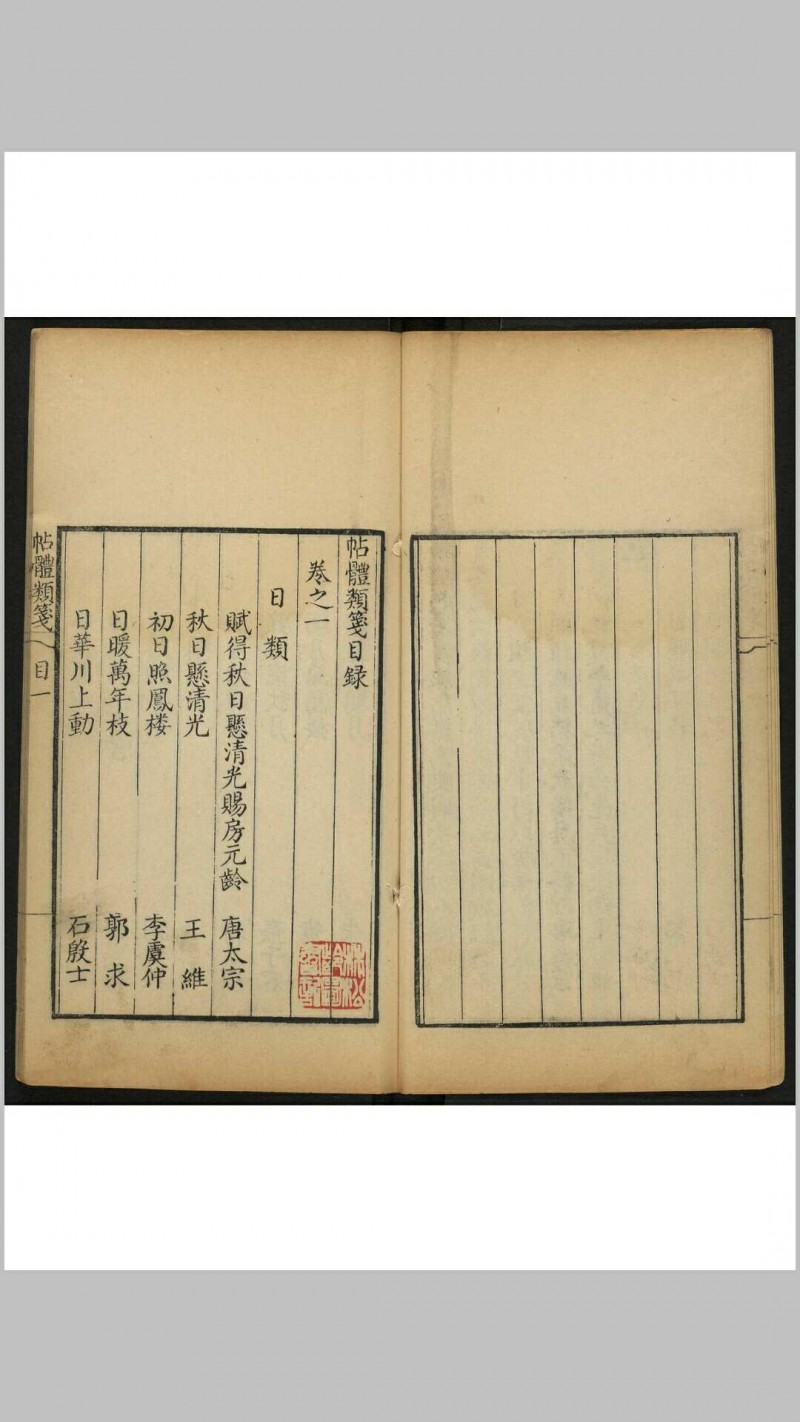 帖體類箋目録
卷之一
日類
賦得秋日懸清光賜房元齡 唐太宗
秋日懸清光 王維
初日照鳳楼 李虞仲
日暖萬年枝 郭求
日華川上動 石殷士
帖體類箋 目一